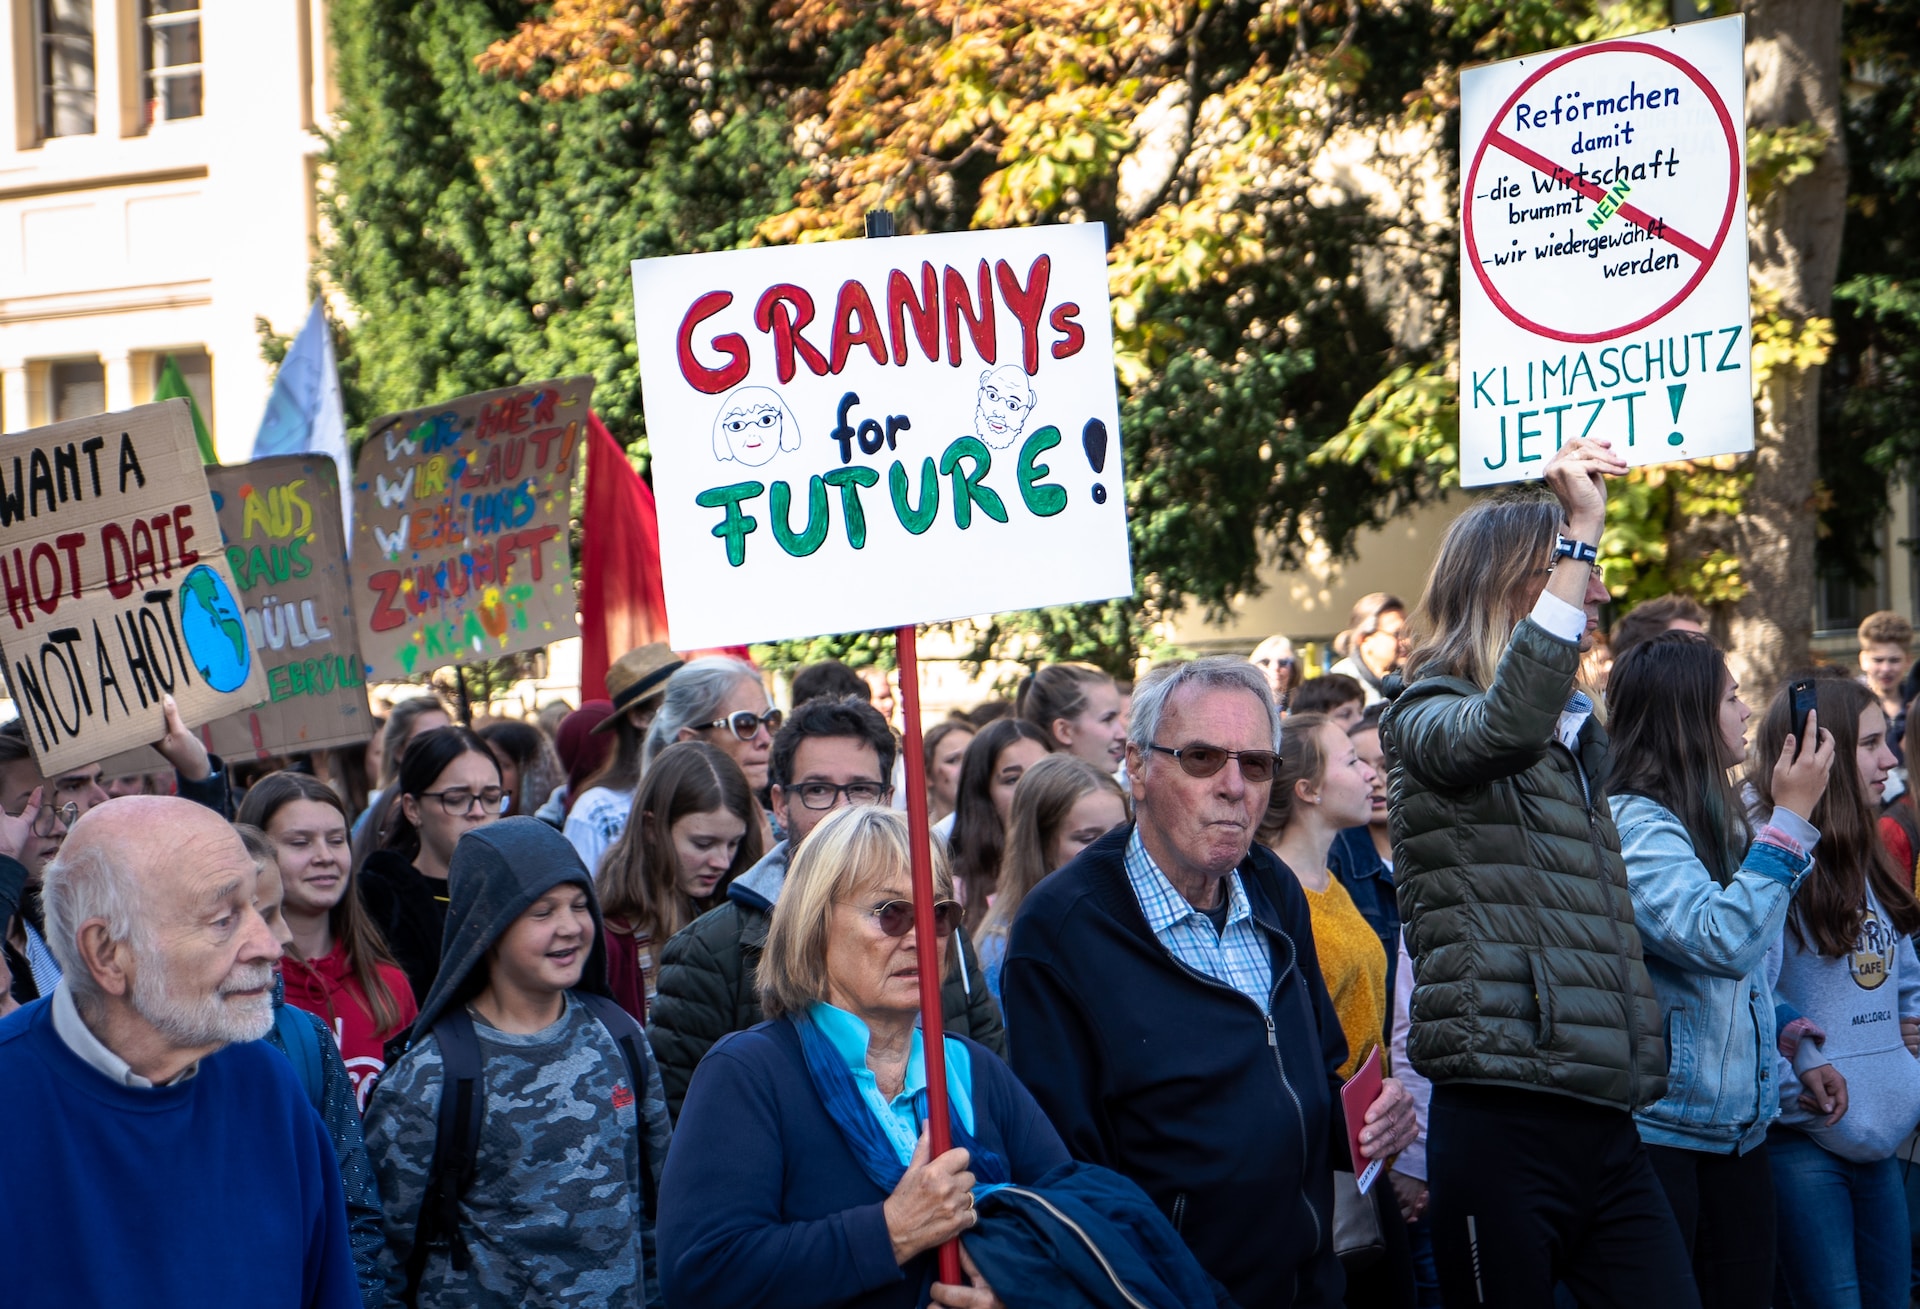 WANT A
HOT DATE
NOT A HOT
AUS
RAUS
MÜLL
GEBRÜLL
!
WIR HIER
WIR LAUT!
WEIL UNS
ZUKUNFT
KLAUT
GRANNYs
for
FUTURE!
Reförmchen
damit
-die Wirtschaft
brummt
NEIN
-wir wiedergewählt
werden
KLIMASCHUTZ
JETZT!
CAFE
MALLORCA